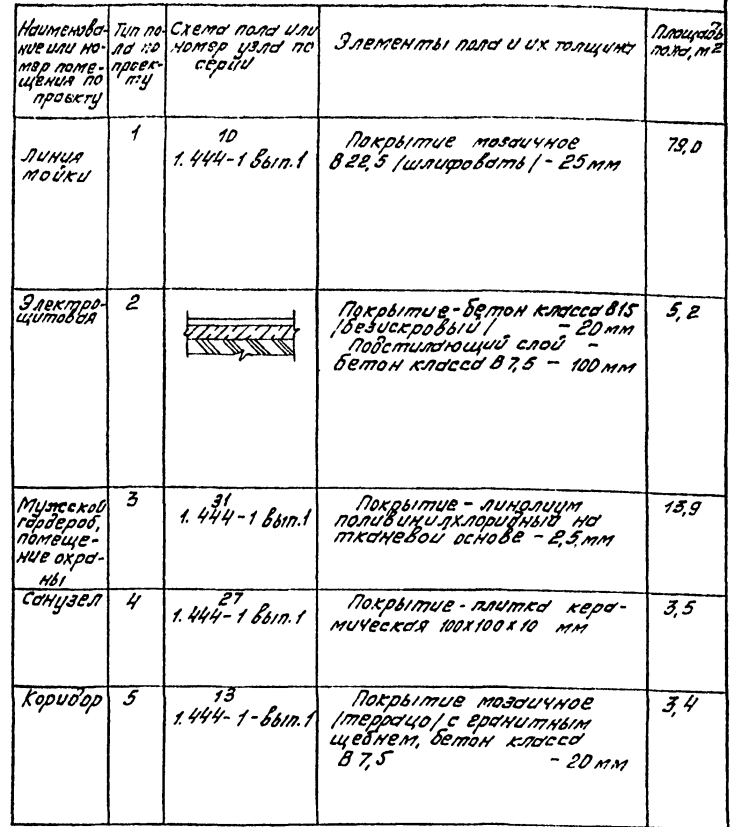 Наименова-
ние или но-
мер поме-
щения по
проекту
Тип по-
ла по
проек-
ту
Схема пола или
номер узла по
серии
Элементы пола и их толщина
Площадь
пола, м2
Линия
мойки
1
10
1.444-1 Вып.1
Покрытие мозаичное
В 22,5 /шлифовать/ - 25 мм
79,0
Электро-
щитовая
2
Покрытие - бетон класса В15
/безискровый/ - 20 мм
Подстилающий слой -
бетон класса В 7,5 - 100 мм
5,2
Мужской
гардероб,
помеще-
ние охра-
ны
3
31
1.444-1 Вып.1
Покрытие - линолиум
поливинилхлоридный на
тканевой основе - 2,5 мм
13,9
Санузел
4
27
1.444-1 Вып.1
Покрытие - плитка кера-
мическая 100х100х10 мм
3,5
Коридор
5
13
1.444-1-вып.1
Покрытие мозаичное
/террацо/ с гранитным
щебнем, бетон класса
В 7,5 - 20 мм
3,4